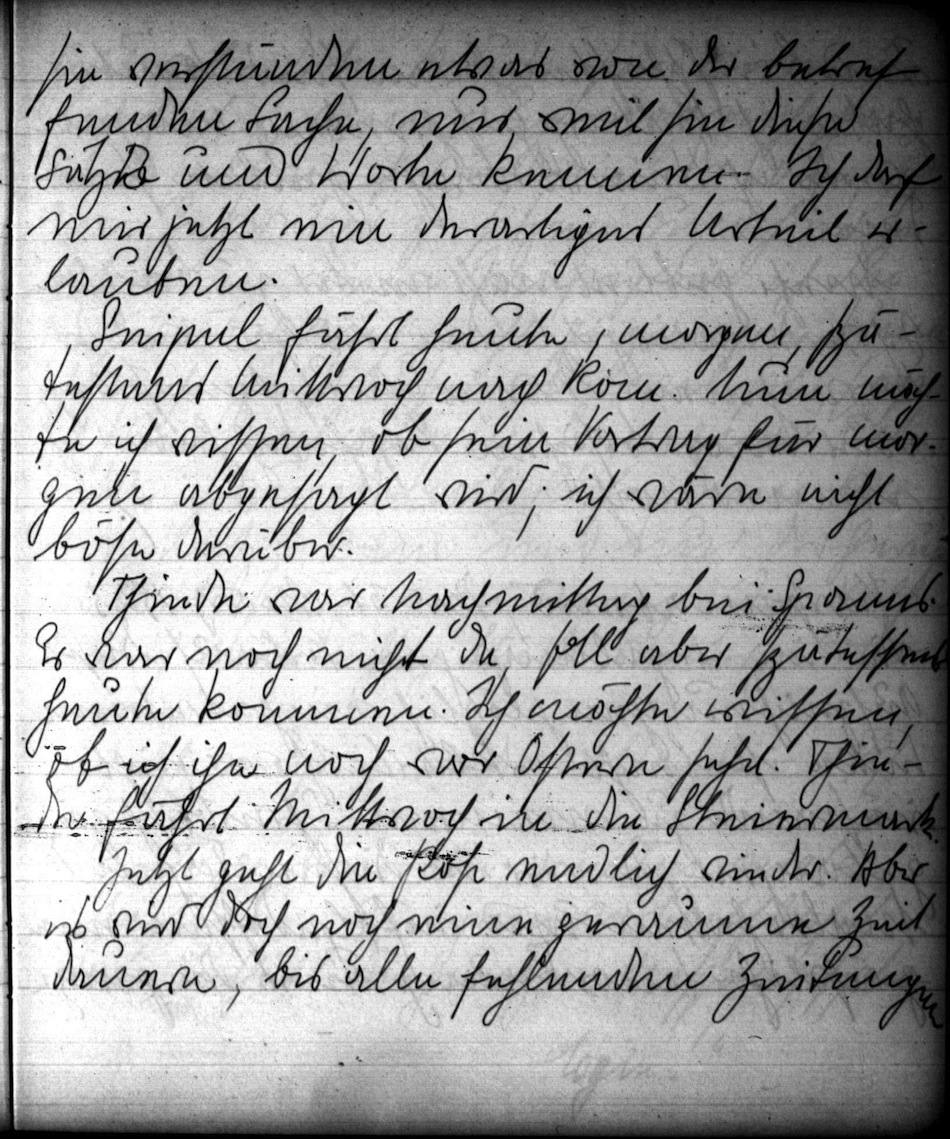 sie verstünden etwas von der betref-
fenden Sache, nur weil sie diese
Sätze und Worte kennen. Ich darf
mir jetzt ein derartiges Urteil er-
lauben.
Seipel fährt heute, morgen, spä-
testens Mittwoch nach Rom. Nun möch-
te ich wissen, ob sein Vortrag für mor-
gen abgesagt wird; ich wäre nicht
böse darüber.
war Nachmittag bei Spanns.
Er war noch nicht da, soll aber spätestens
heute kommen. Ich möchte wissen,
ob ich ihn noch vor Ostern sehe.
fährt Mittwoch in die Steiermark.
Jetzt geht die Post endlich wieder. Aber
es wird doch noch eine geraume Zeit
dauern, bis alle fehlenden Zeitungen